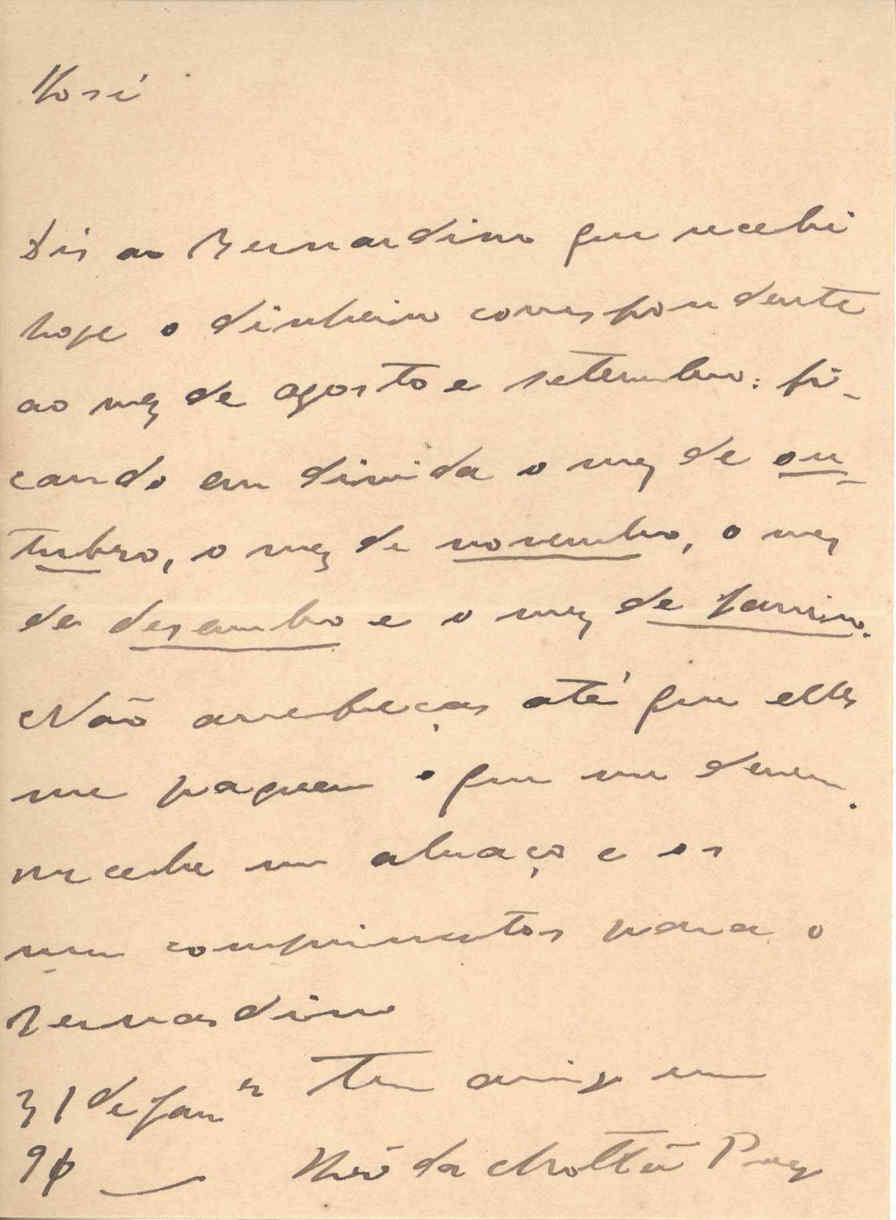 José
Dis ao Bernardino que recebi
hoje o dinheiro correspondente
ao mez de agosto e setembro: fi-
cando em divida o mez de ou-
tubro, o mez de novembro, o mez
de desembro e o mez de Janeiro.
Não arrebeças até que elles
me paguem o que me devem.
recebe um abraço e os
meus comprimentos para o
Bernardino
31 de Janro Teu amigo
9 da Motta